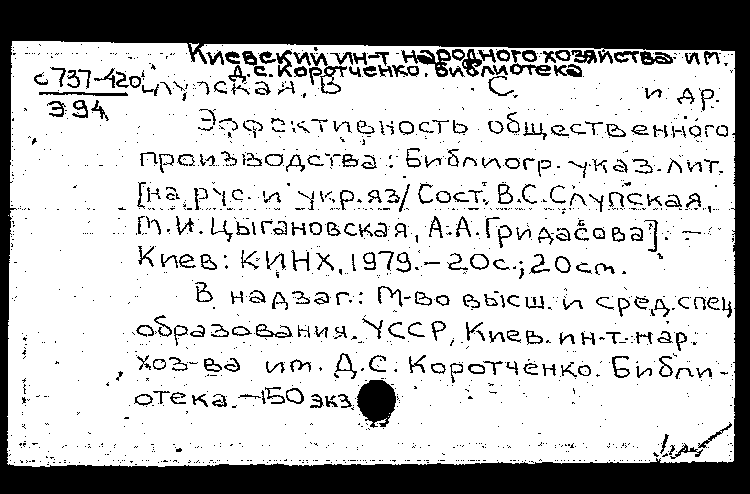 Киевский ин-т народного хозяйства им.
Д.С. Коротченко. Библиотека
с 737-420
Э 94
Слупская, В. С. и др.
Эффективность общественного
производства: Библиогр. указ. лит.
[на рус. и укр. яз/ Сост. В.С. Слупская,
М.И. Цыгановская, А.А. Гридасова]. –
Киев: КИНХ, 1979. – 20с.; 20 cm.
В надзаг.: М-во высш. и сред. спец
образования. УССР, Киев. ин-т. нар.
хоз-ва им. Д.С. Коротченко. Библи-
отека. – 150 экз